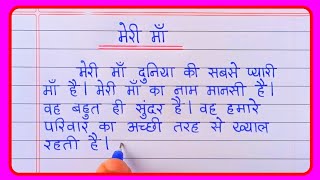 मेरी माँ
मेरी माँ दुनिया की सबसे प्यारी
माँ है। मेरी माँ का नाम मानसी है।
वह बहुत ही सुंदर है। वह हमारे
परिवार का अच्छी तरह से ख्याल
रहती है।